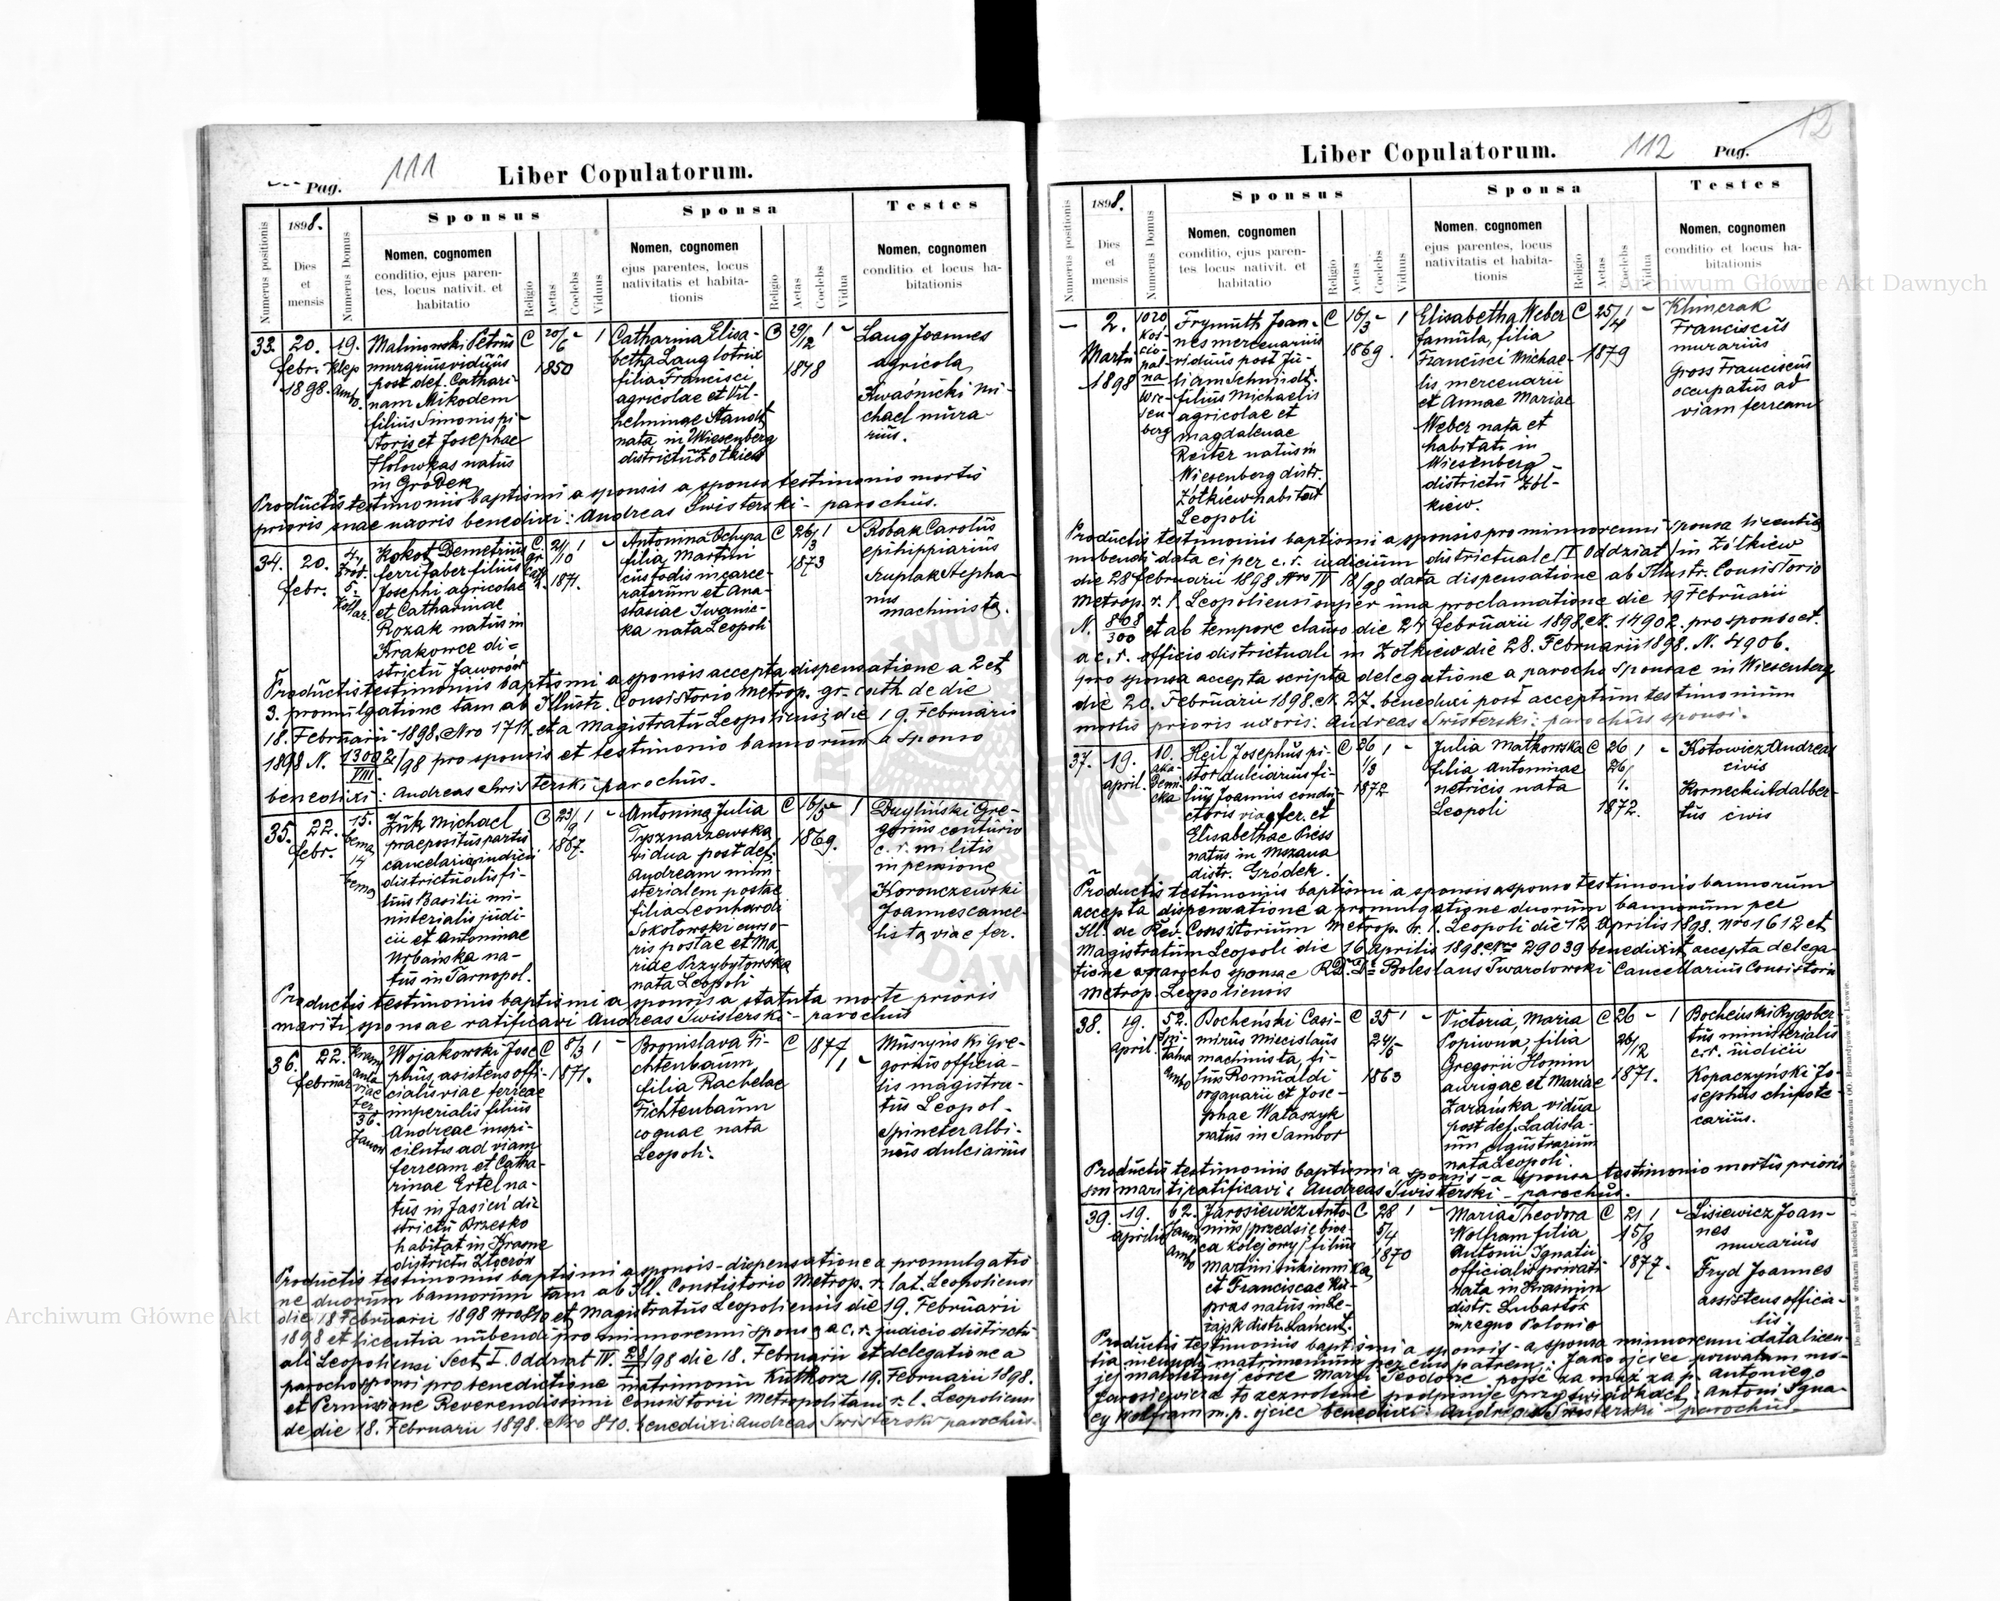 Pag.
111
Liber Copulatorum.
Numerus positionis
1898.
Dies
et
mensis
Numerus Domus
Sponsus
Nomen, cognomen
conditio, ejus paren-
tes, locus nativit. et
habitatio
Religio
Aetas
Coelebs
Viduus
Sponsa
Nomen, cognomen
ejus parentes, locus
nativitatis et habita-
tionis
Religio
Aetas
Coelebs
Vidua
Testes
Nomen, cognomen
conditio et locus ha-
bitationis
33.
20.
febr.
1898.
19.
Klep
Malinowski Petrus
murarius viduus
post def. Cathari-
nam Mikodem
filius Simonis pi-
storis et Josephae
Hołowkas natus
in Gródek
C
20/6
1850
-
1
Catharina Elisa-
betha Lang lotrix
filia Francisci
agricolae et Vil-
helminae Standt
nata in Wiesenberg
districtu Żołkiew
C
29/12
1878
1
-
Lang Joannes
agricola
Kwaśnicki Mi-
chael mura-
rius.
Productis testimoniis baptismi a sponsis a sponso testimonio mortis
prioris suae uxoris benedixi: Andreas Swisterski - parochus.
34.
20.
febr.
4.
Kokot Demetrius
ferrifaber filius
Josephi agricolae
et Catharinae
Rozak natus in
Krakowce di-
strictu Jaworów
C
21/10
1871.
1
-
Antonina Uchyra
filia Martini
custodis incarce-
ratorum et Ana-
stasiae Iwanic-
ka nata Leopoli
C
26/3
1873
1
-
Robak Carolus
ephippiarius
Szuplak Stepha-
nus
machinista.
Productis testimoniis baptismi a sponsis accepta dispensatione a 2 et
3. promulgatione tam ab Illustr. Consistorio Metrop. gr. cath. de die
18. Februarii 1898. Nro 1717. et a Magistratu Leopoliensi die 19. Februarii
1898 N. 13002/VIII/98 pro sponsis et testimonio bannorum a sponso
benedixi: Andreas Swisterski parochus.
35.
22.
febr.
15.
Bema
14
Bema
Żuk Michael
praepositus partis
cancelariae judicii
districtualis fi-
lius Basilii mi-
nisterialis judi-
cii et Antoninae
Urbańska na-
tus in Tarnopol.
C
23/9
1867.
1
-
Antonina Julia
Tysznarzewska
vidua post def.
Andream mini-
sterialem postae
filia Leonhardi
Sokolowski curso-
ris postae et Ma-
riae Przybyłowska
nata Leopoli
C
16/5
1869.
-
1
Duyliński Gre-
gorius conturio
c. r. militis
in pensione
Koronczewski
Joannes cance-
lista viae fer.
Productis testimoniis baptismi a sponsis a statuta morte prioris
mariti sponsae ratificavi Andreas Swisterski - parochus
36.
22.
februar.
Wojakowski Jose-
phus, asistens offi-
cialis viae ferreae
imperialis filius
Andreae inspi-
cientis ad viam
ferream et Catha-
rinae Ertel na-
tus in Jasień di-
strictu Brzesko
habitat in Krasne
districtu Złoczów
C
8/3
1871.
1
-
Bronislava Fi-
chtenbaum
filia Rachelae
Fichtenbaum
coquae nata
Leopoli.
C
1877
1
-
Musnyński Gre-
gorius officia-
lis magistra-
tus Leopol-
Spineter Albi-
nus dulciarius
Productis testimoniis baptismi a sponsis - dispensatione a promulgatio-
ne duorum bannorum tam ab Ill. Consistorio Metrop. r. lat. Leopoliensi
die 18 Februarii 1898 Nro 810 et Magistratus Leopoliensis die 19. Februarii
1898 et licentia nubendi pro minorenni sponsa a c. r. judicio districtu-
ali Leopoliensi Sect. I. Oddział IV. /98 die 18. Februarii et delegatione a
parocho sponsi pro benedictione matrimonii Kutkorz 19. Februarii 1898.
et Permissione Reverendissimi Consistorii Metropolitani r. l. Leopoliens.
de die 18. Februarii 1898. Nro 810. benedixi: Andreas Swisterski parochus.
12
Liber Copulatorum.
112
Pag.
Numerus positionis
1898.
Dies
et
mensis
Numerus Domus
Sponsus
Nomen, cognomen
conditio, ejus paren-
tes locus nativit. et
habitatio
Religio
Aetas
Coelebs
Viduus
Sponsa
Nomen, cognomen
ejus parentes, locus
nativitatis et habita-
tionis
Religio
Aetas
Coelebs
Vidua
Testes
Nomen, cognomen
conditio et locus ha-
bitationis
-
2.
Martii
1898
1020
Koś-
cio-
pal-
na
Wie-
sen-
berg
Frymuth Joan-
nes mercenarius
viduus post Ju-
liam Schmidt.
filius Michaelis
agricolae et
Magdalenae
Reiter natus in
Wiesenberg distr.
Żółkiew habitat
Leopoli
C
16/3
1869.
-
1
Elisabetha Weber
famula, filia
Francisci Michae-
lis, mercenarii
et Annae Mariae
Weber nata et
habitati in
Wiesenberg
districtu Żół-
kiew.
C
25/4
1879
1
-
Klimczak
Franciscus
murarius
Gross Franciscus
occupatus ad
viam ferream
Productis testimoniis baptismi a sponsis pro minorenni sponsa licentia
nubendi data ei per c. r. iudicium districtuale /I Oddział/ in Żółkiew
die 28 februarii 1898 Nro IV 18/98 data dispensatione ab Illustr. Consistorio
Metrop. r. l. Leopoliensi super una proclamatione die 19 Februarii
N. 808/300 et ab tempore clauso die 24 februarii 1898. N. 14902. pro sponso et
a c. r. officio districtuali in Żołkiew die 28. Februarii 1898. N. 4906.
pro sponsa accepta scripta delegatione a parocho sponsae in Wiesenberg
die 20. Februarii 1898. N. 27. benedixi post acceptum testimonium
mortis prioris uxoris: Andreas Swisterski: parochus sponsi.
37.
19.
april.
10.
aka-
demi-
cka
Heil Josephus pi-
stor dulciarius fi-
lius Joannis condu-
ctoris viae fer. et
Elisabethae Press
natus in Mszana
distr. Gródek.
C
26
1/3
1872
1
-
Julia Matkowska
filia Antoninae
netricis nata
Leopoli
C
26
26/1.
1872.
1
-
Kotowicz Andreas
civis
Kornecki Adalber-
tus civis
Productis testimoniis baptismi a sponsis a sponso testimonio bannorum
accepta dispensatione a promulgatione duorum bannorum per
Ill. ac Rev. Consistorium Metrop. r. l. Leopoli die 12 Aprilis 1898. Nro 1612 et
Magistratum Leopoli die 16 Aprilis 1898. Nro 29039 benedixit accepta delega-
tione a parocho sponsae RD. Dr. Boleslaus Twardowski Cancellarius Consistorii
Metrop. Leopoliensis
38.
19.
april.
52.
Bocheński Casi-
mirus Miecislaus
machinista, fi-
lius Romualdi
organarii et Jose-
phae Wataszyk
natus in Sambor
C
35
24/5
1863
1
-
Victoria, Maria
Popiwna, filia
Gregorii Homin
aurigae et Mariae
Zarańska vidua
post def. Ladisla-
um
nata Leopoli.
C
26
26/12
1871.
-
1
Bocheński Rygober-
tus ministerialis
c. r. iudicii
Kopaczyński Jo-
sephus chipote-
carius.
Productis testimoniis baptismi a sponsis - a sponsa testimonio mortis prioris
sui mariti ratificavi: Andreas Swisterski - parochus.
39.
19.
Aprilis
62.
Janow.
Jarosiewicz Anto-
nius /przedsiębior-
ca kolejowy/ filius
Martini sukiennika
et Franciscae Ku-
pras natus in Le-
żajsk distr. Łańcut.
C
28
5/4
1870
1
-
Maria Theodora
Wolfram filia
Antonii Ignatii
officialis privati
nata in Krasinin
distr. Lubartów
in regno Polonio
C
21
15/8
1877.
1
-
Lisiewicz Joan-
nes
murarius
Fryd Joannes
assistens officia-
lis
Productis testimoniis baptismi a sponsis - a sponsa minorenni data licen-
tia ineundi matrimonium per eius patrem: Jako ojciec pozwalam mo-
jej małoletniej córce Marii Teodorze pojść za mąż za p. Antoniego
Jarosiewicza to zezwolenie podpisuje przy świadkach: Antoni Igna-
cy Wolfram m. p. ojciec benedixi: Andreas Swisterski - parochus.
Do nabycia w drukarni katolickiej J. Chęcińskiego w zabudowaniu OO. Bernardynów we Lwowie.
Archiwum Główne Akt Dawnych
Archiwum Główne Akt